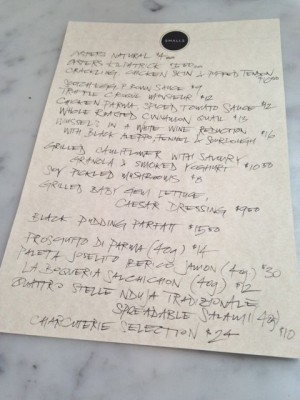 SMALLS
OYSTERS NATURAL $4
OYSTERS
CRACKLING, CHICKEN SKIN & PUFFED TENDON
& BROWN SAUCE $9
TRUFFLE CROQUE MONSIEUR $12
CHICKEN PARMA SPICED TOMATO SAUCE $12
WHOLE ROASTED CINNAMON QUAIL $13
MUSSELS IN A WHITE WINE REDUCTION
WITH BLACK FENNEL & SOURDOUGH $16
GRILLED CAULIFLOWER WITH SAVOURY
GRANOLA & SMOKED YOGHURT $10.50
SOY PICKLED MUSHROOMS $8
GRILLED BABY GEM LETTUCE,
CAESAR DRESSING $9.00
BLACK PUDDING PARFAIT $15.00
PROSCIUTTO DI PARMA (40g) $14
PALETA JOSELITO IBERICO JAMON (40g) $30
LA BOQUERIA SALCHICHON (40g) $12
QUATTRO STELLE NDUJA TRADIZIONALE
SPREADABLE SALAMI (40g) $10
CHARCUTERIE SELECTION $24